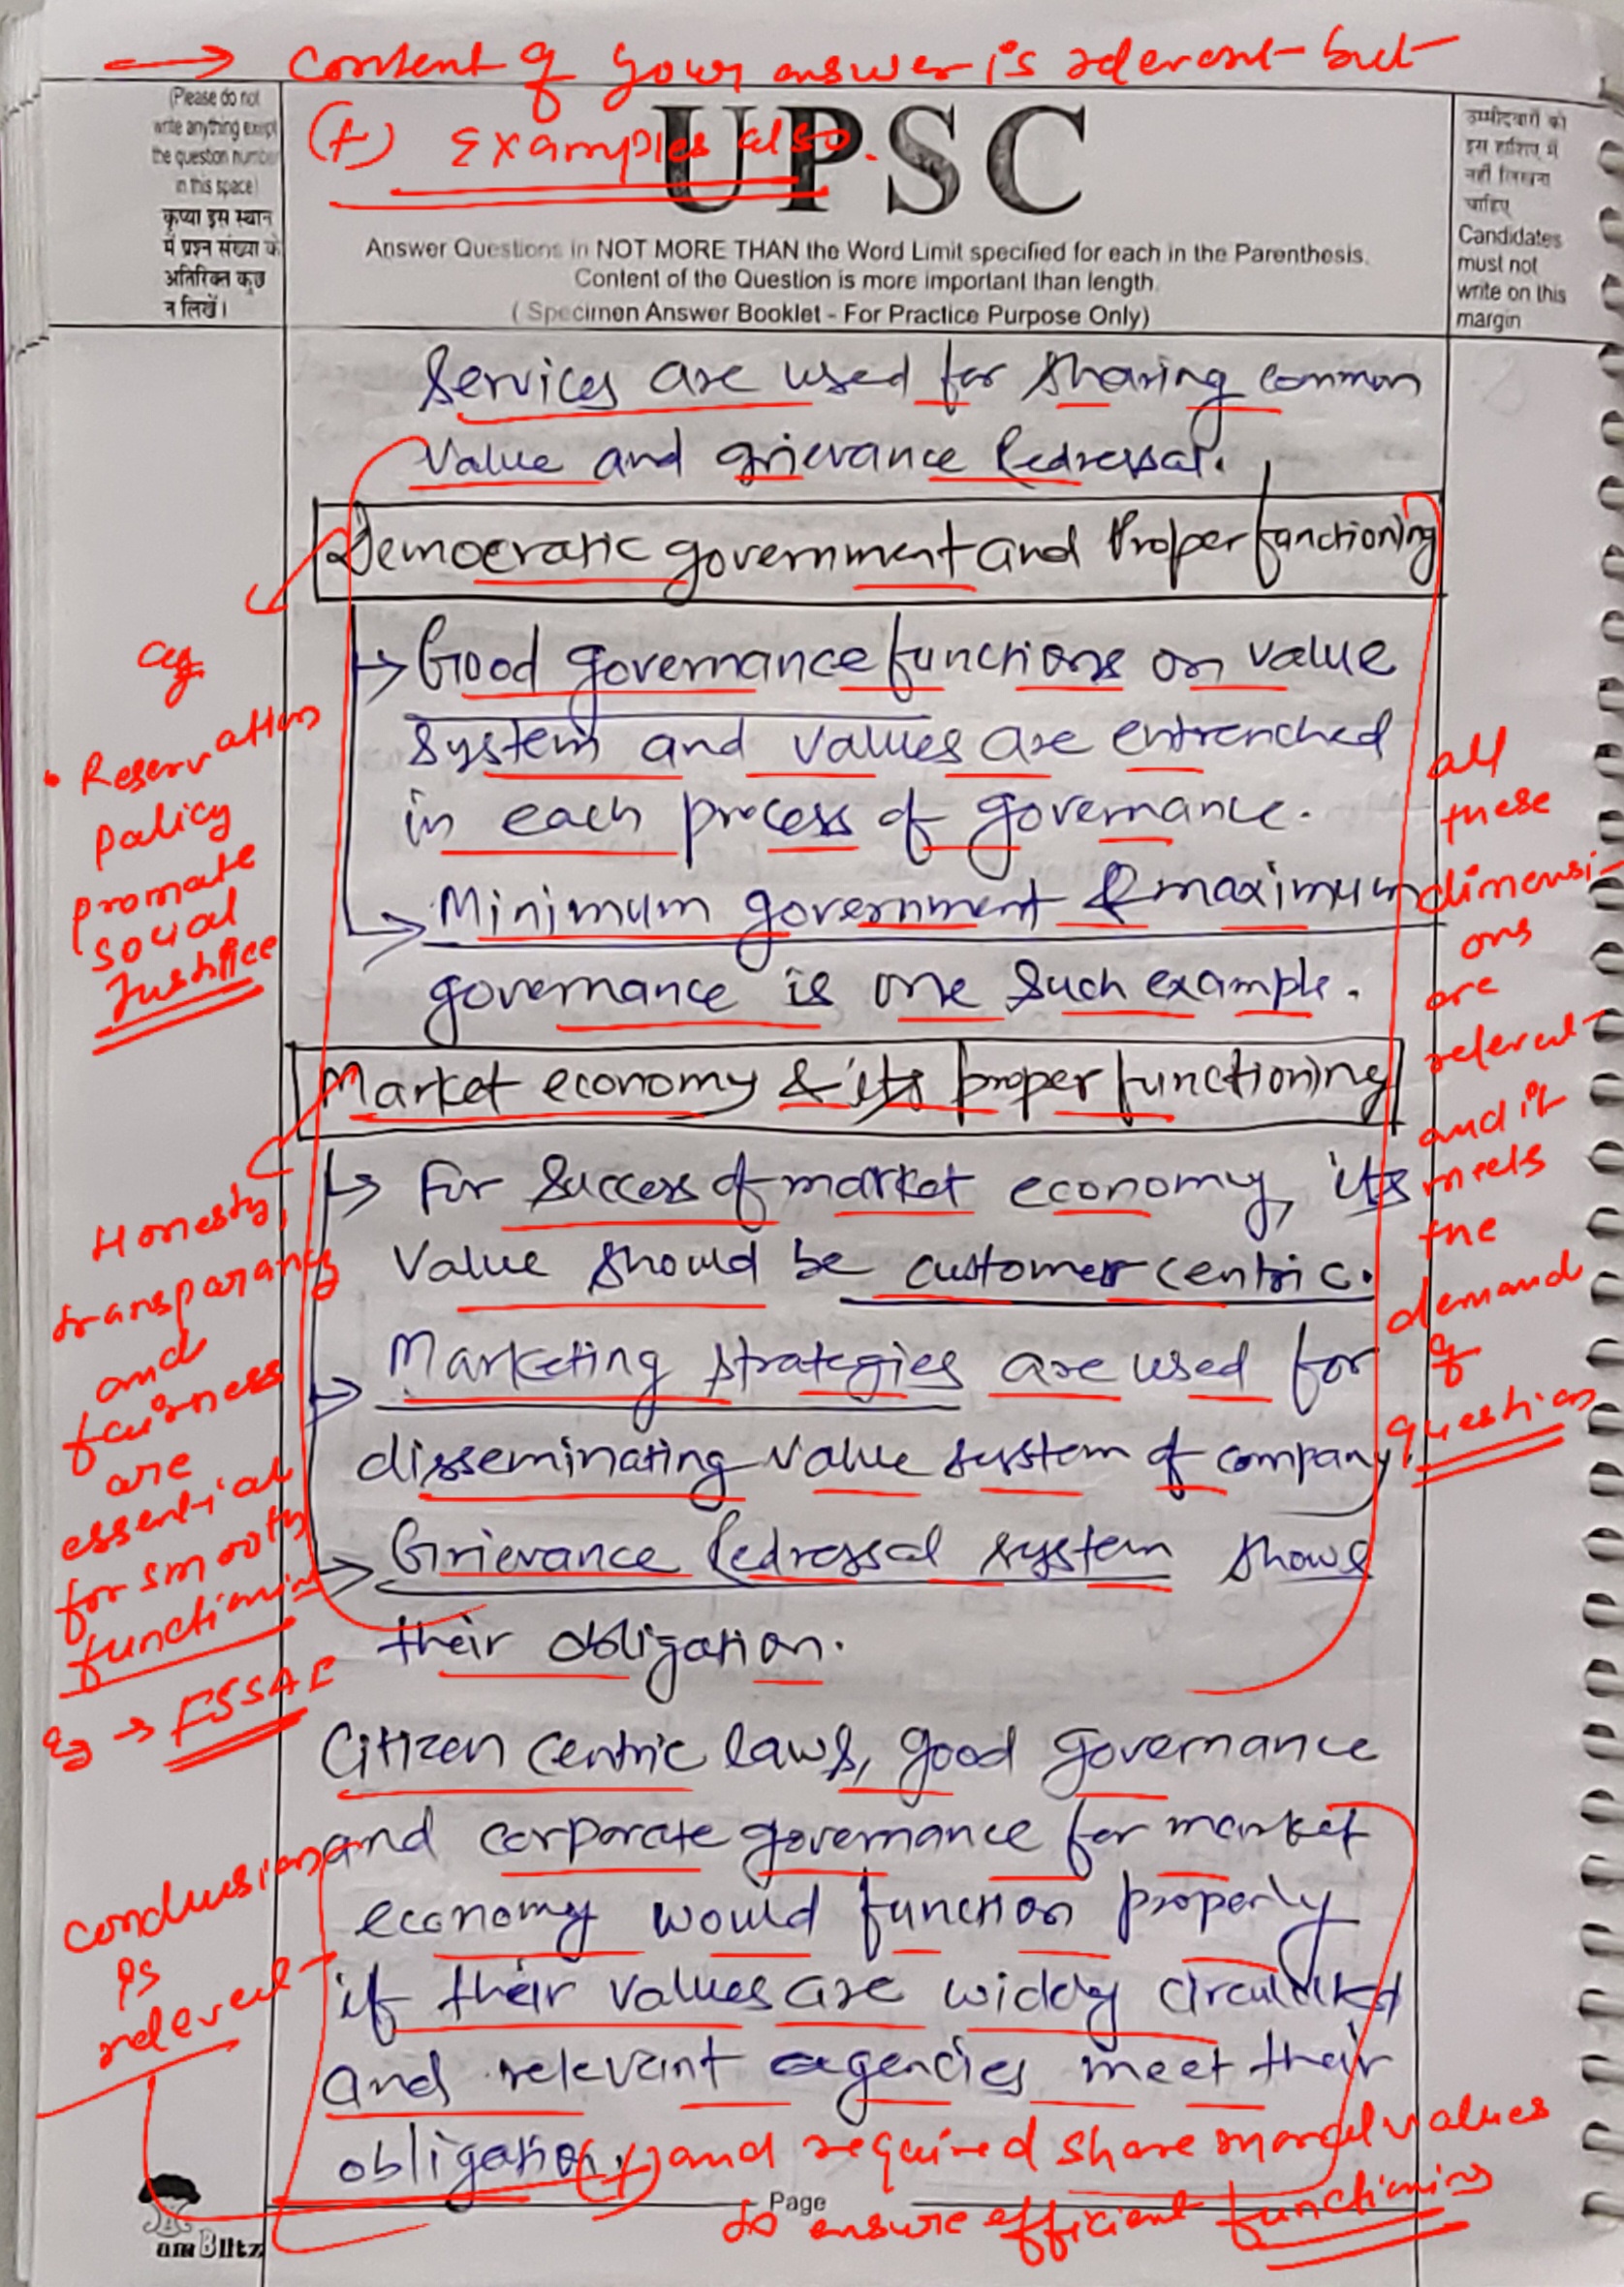 → Content of your answer is relevant but
(+) Examples also.
(Please do not
write anything exept
the question number
in this space)
कृप्या इस स्थान
में प्रश्न संख्या के
अतिरिक्त कुछ
न लिखें।
UPSC
Answer Questions in NOT MORE THAN the Word Limit specified for each in the Parenthesis.
Content of the Question is more important than length.
( Specimen Answer Booklet - For Practice Purpose Only)
उम्मीदवारों को
इस हाशिए में
नहीं लिखना
चाहिए
Candidates
must not
write on this
margin
Services are used for sharing common
value and grievance Redressal.
Democratic government and Proper functioning
→ Good governance functions on value
system and values are entrenched
in each process of governance.
→ Minimum government & maximum
governance is one such example.
Market economy & its proper functioning
→ For success of market economy, its
value should be customer centric.
→ Marketing strategies are used for
disseminating value system of company.
→ Grievance Redressal system shows
their obligation.
Citizen centric laws, good governance
and corporate governance for market
economy would function properly
if their values are widely circulated
and relevant agencies meet their
obligation.
(+) and required share moral values
to ensure efficient functioning
eg
• Reservation
policy
promote
social
Justice
Honesty,
transparancy
and
fairness
are
essential
for smooth
functioning
Eg → FSSAI
conclusion
is
relevent
all
these
dimensi-
ons
are
relevent
and it
meets
the
demand
of
question
Page
amBlitz